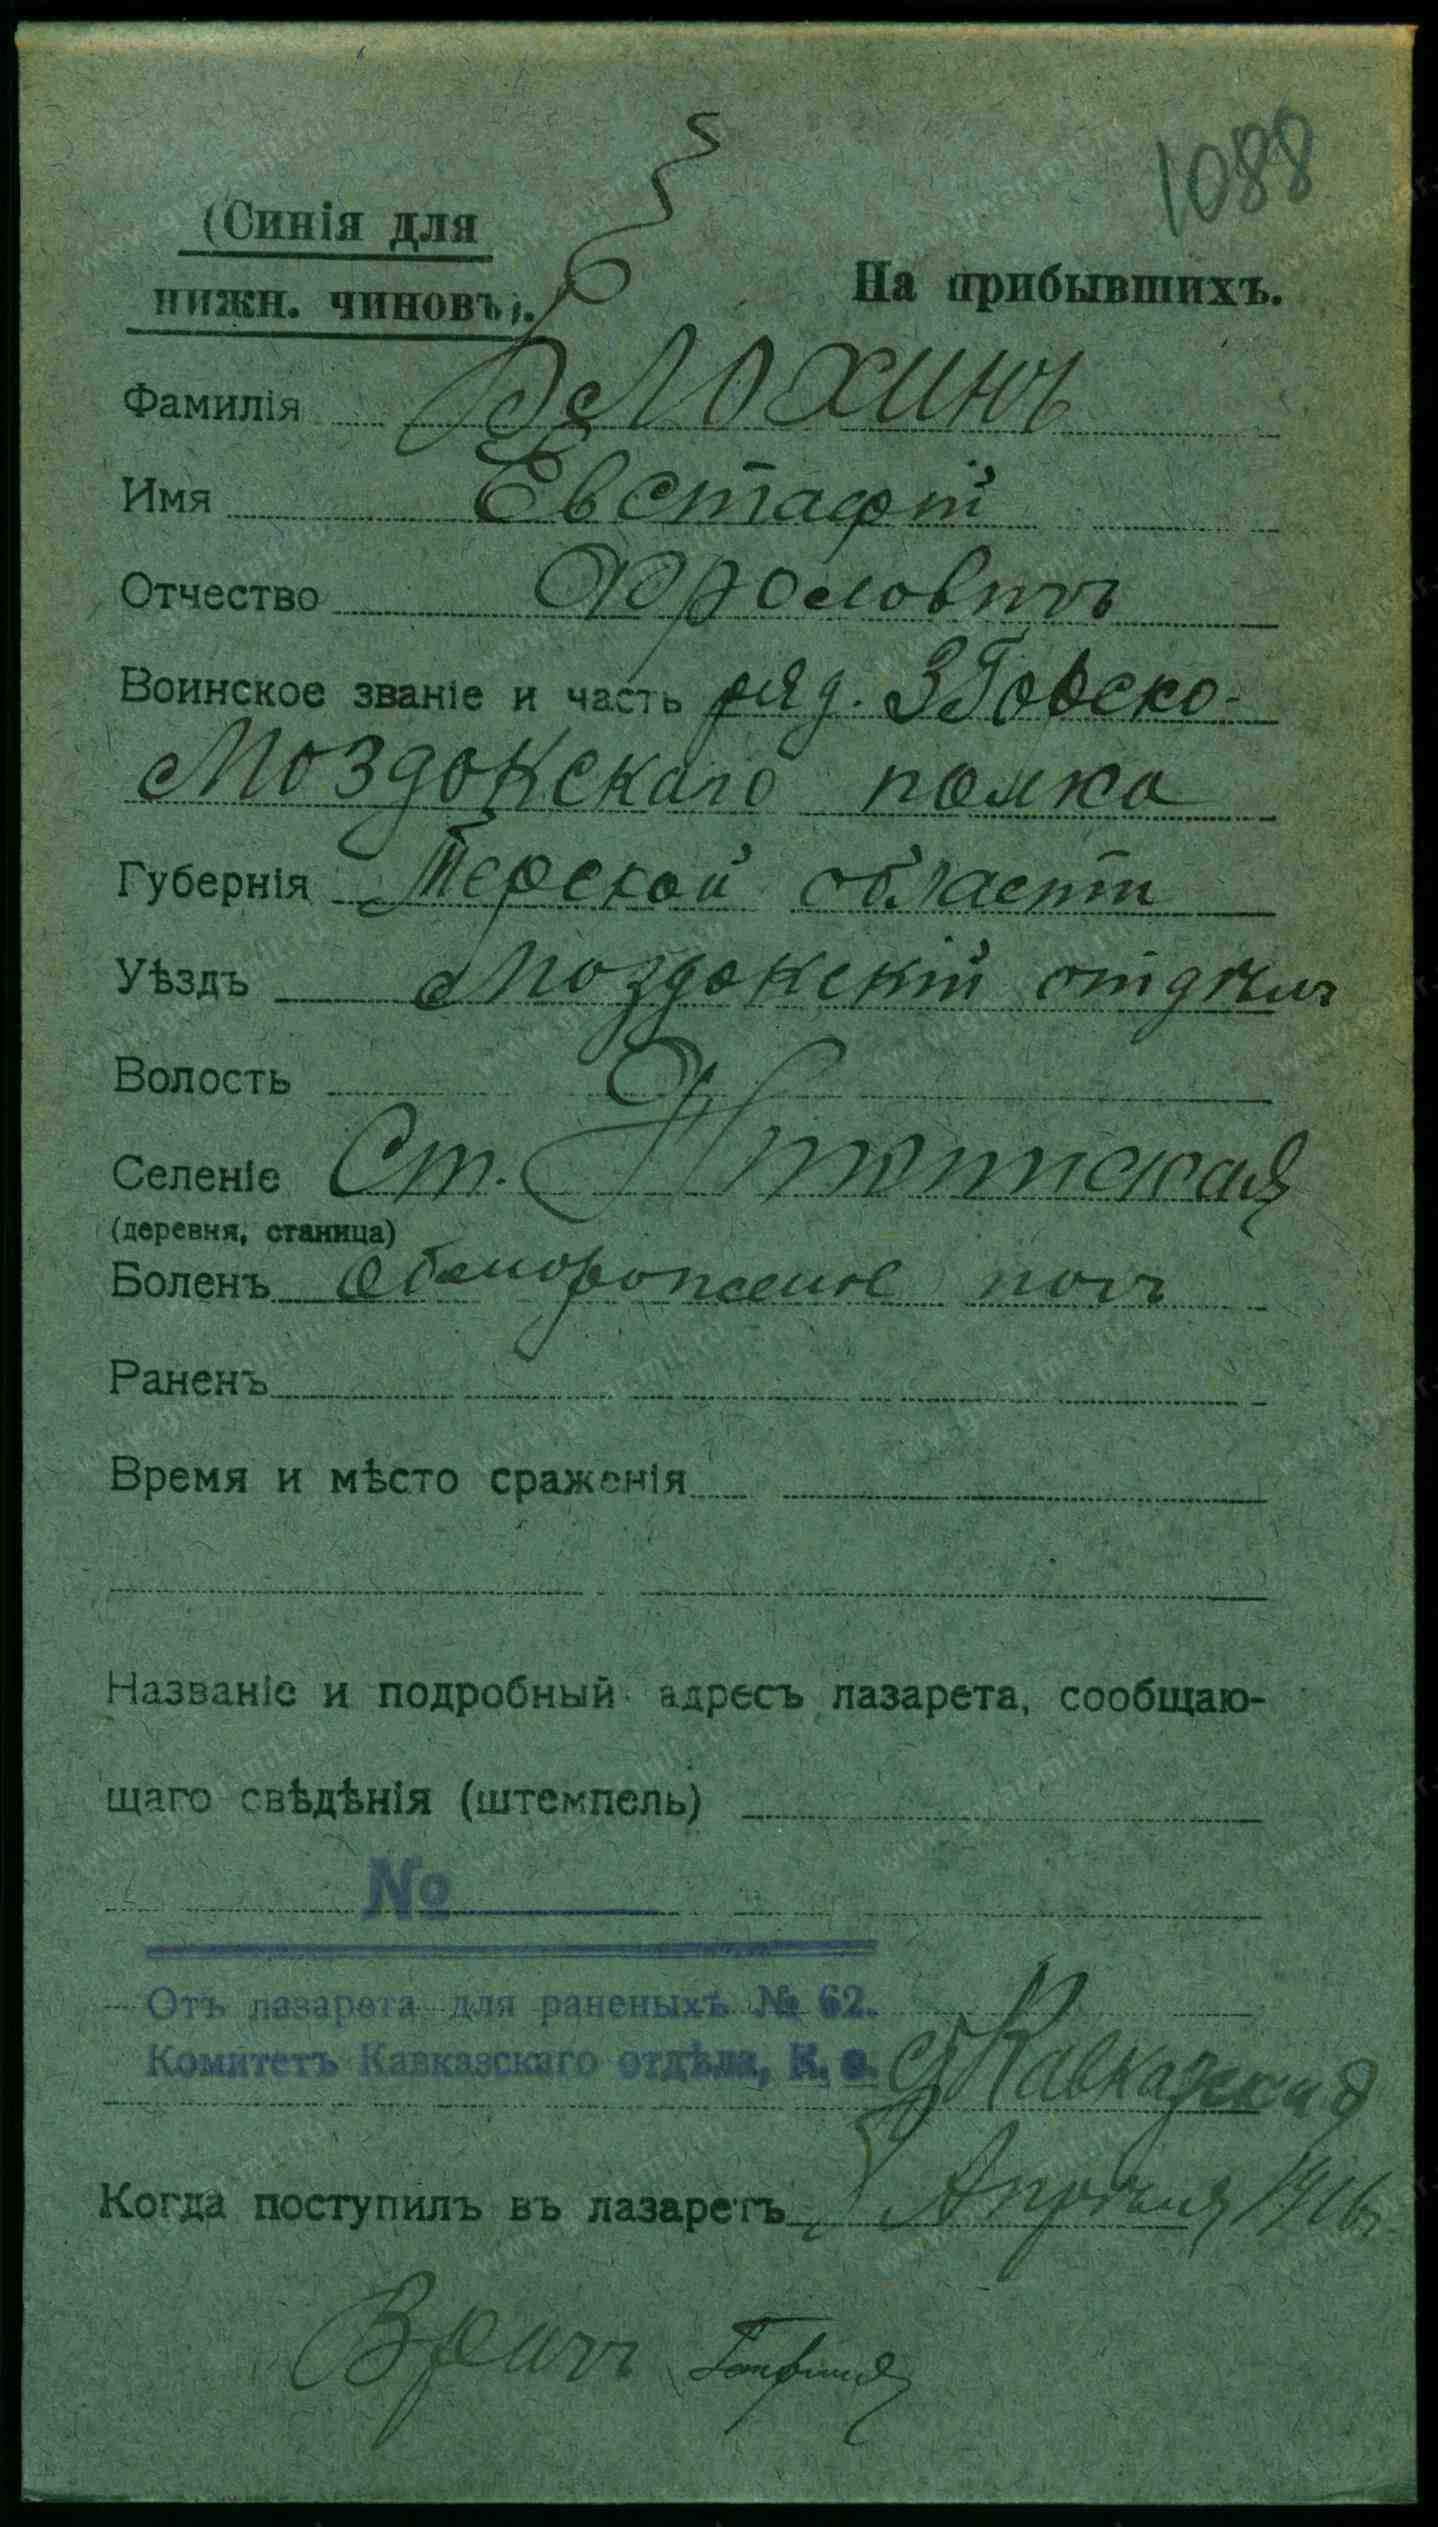 1088
(Синія для
нижн. чиновъ).
На прибывшихъ.
Фамилія Блохинъ
Имя Евстафій
Отчество Фроловичъ
Воинское званіе и часть ряд. 3 Горско-
Моздокскаго полка
Губернія Терской области
Уѣздъ Моздокскій отдѣлъ
Волость
Селеніе Ст.
(деревня, станица)
Боленъ Обмороженіе ногъ
Раненъ
Время и мѣсто сраженія
Названіе и подробный адресъ лазарета, сообщаю-
щаго свѣдѣнія (штемпель)
№
Отъ лазарета для раненыхъ № 62.
Комитетъ Кавказскаго отдѣла, К. о. Кавказская
Когда поступилъ въ лазаретъ Апрѣля 1916г.
Врачъ